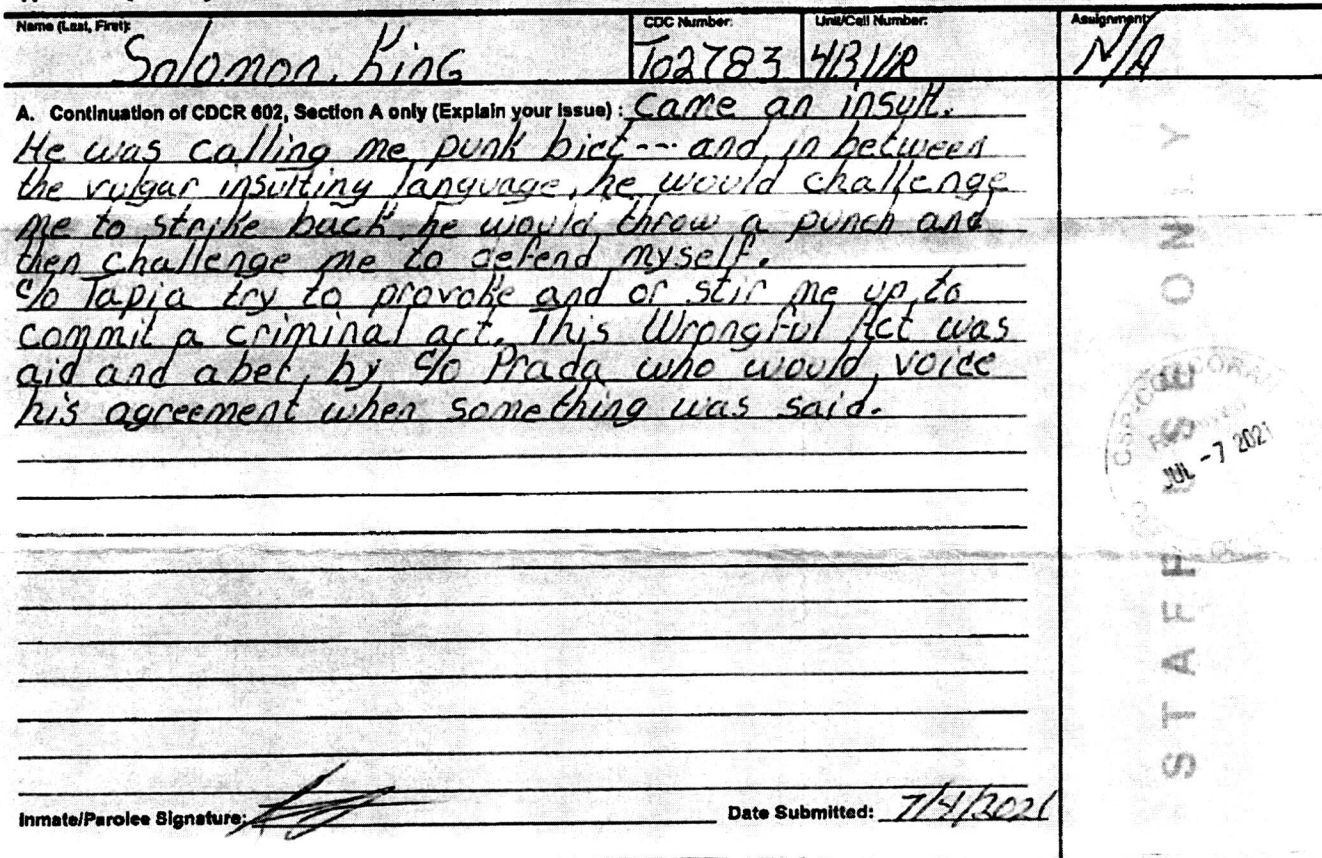 Name (Last, First):
Solomon, King
CDC Number:
T02783
Unit/Cell Number:
4B1/R
Assignment:
N/A
A. Continuation of CDCR 602, Section A only (Explain your issue) : came an insult.
He was calling me punk bict--- and in between
the vulgar insulting language, he would challenge
me to strike back he would throw a punch and
then challenge me to defend myself.
c/o Tapia try to provoke and or stir me up, to
commit a criminal act. This Wrongful Act was
aid and abet, by c/o Prada who would, voice
his agreement when something was said.
Inmate/Parolee Signature:
Date Submitted: 7/4/2021
STAFF USE ONLY
JUL -7 2021